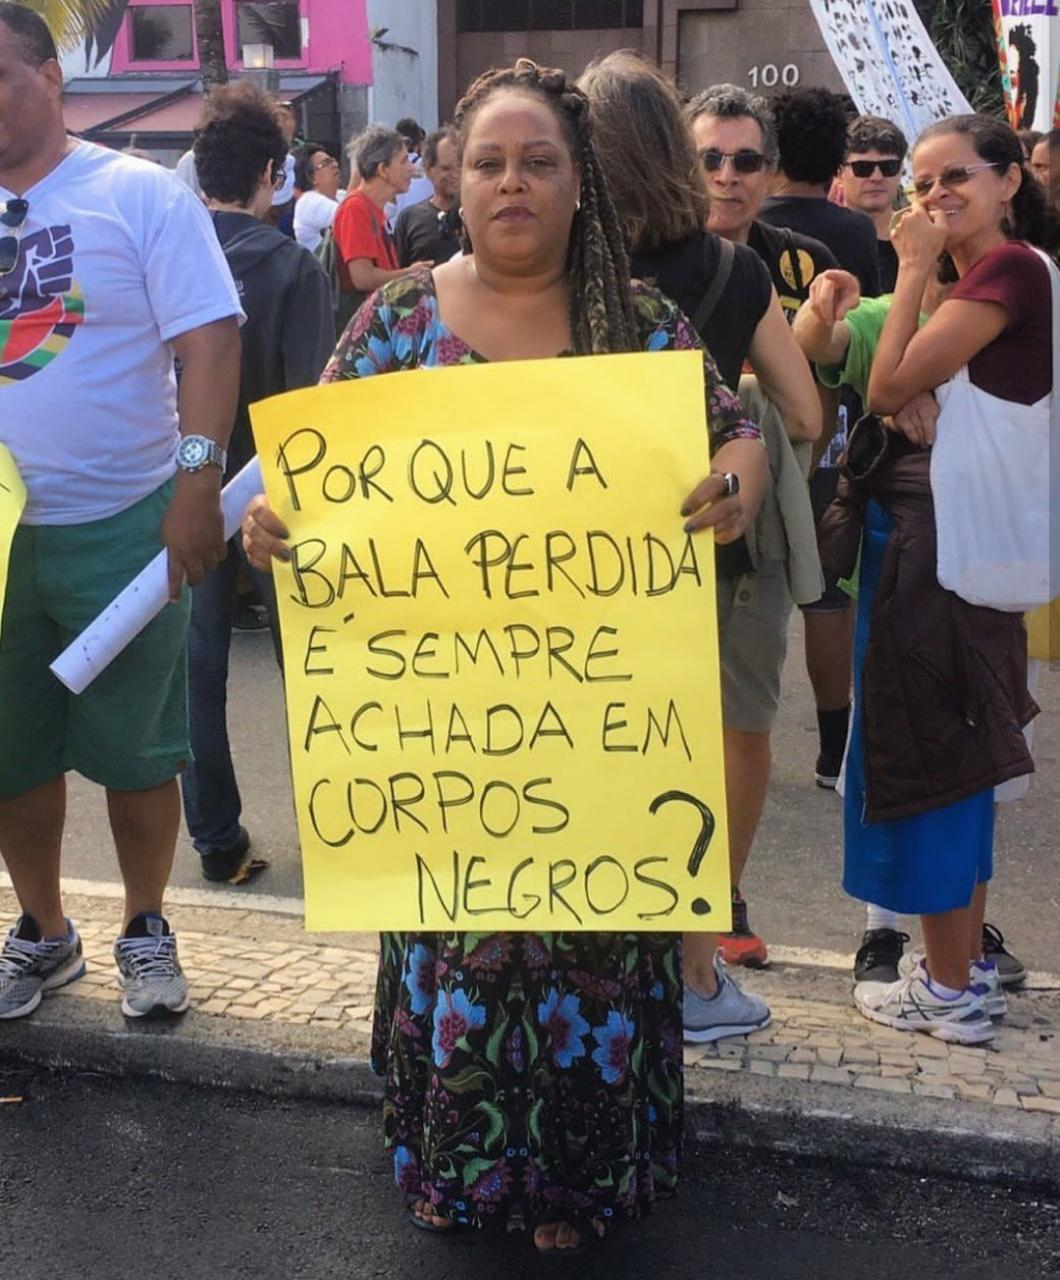 100
POR QUE A
BALA PERDIDA
É SEMPRE
ACHADA EM
CORPOS
NEGROS?